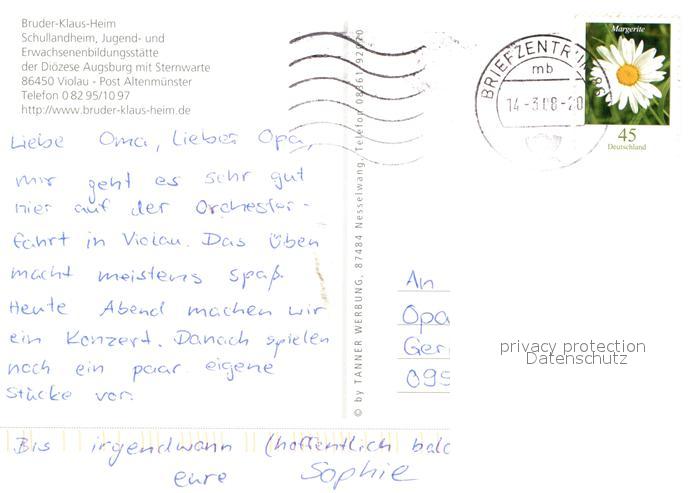 Bruder-Klaus-Heim
Schullandheim, Jugend- und
Erwachsenenbildungsstätte
der Diözese Augsburg mit Sternwarte
86450 Violau - Post Altenmünster
Telefon 0 82 95/10 97
http://www.bruder-klaus-heim.de
Liebe Oma, Lieber Opa,
mir geht es sehr gut
hier auf der Orchester-
fahrt in Violau. Das Üben
macht meistens Spaß.
Heute Abend machen wir
ein Konzert. Danach spielen
noch ein paar eigene
Stücke vor.
Bis irgendwann (hoffentlich balc
eure Sophie
© by TANNER WERBUNG, 87484 Nesselwang, Telefon
BRIEFZENTR
mb
14-3.08-20
Margerite
45
Deutschland
An
Opa
Ger
095
privacy protection
Datenschutz